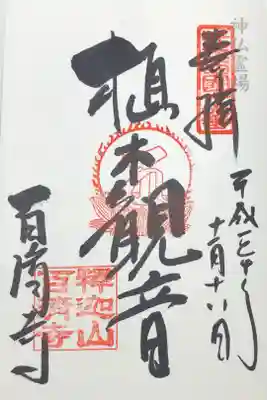 神仏霊場
奉拝
平成二十年
十一月十八日
植木観音
百済寺
釈迦山
百済寺